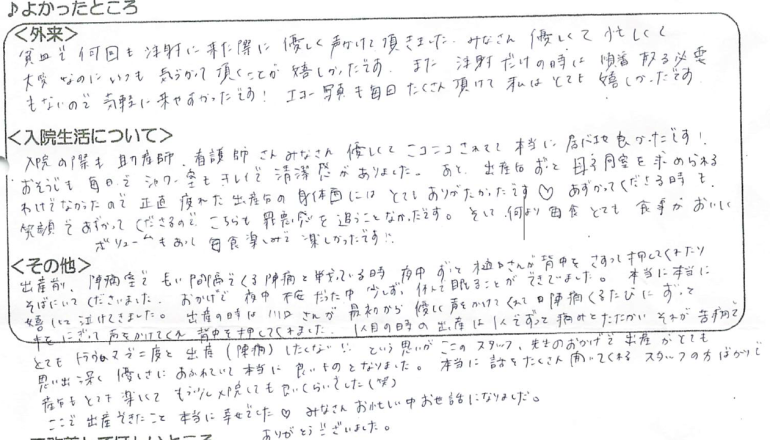 ♪よかったところ
<外来>
貧血で何回も注射に来た際に優しく声かけて頂きました。みなさん 優しくて 忙しくて
大変なのに いつも 気づかって 頂くことが 嬉しかったです。また 注射だけの時は 順番 取る必要
もないので 気軽に 来やすかったです! エコー写真も毎回 たくさん 頂けて 私は とても 嬉しかったです
<入院生活について>
入院の際も 助産師、看護師さん みなさん 優しくて ニコニコされてて 本当に 居心地 良かったです!
おそうじも 毎日で シャワー室も キレイで 清潔感が ありました。あと、出産後 ずっと 母子同室を 求められる
わけでなかったので 正直 疲れた 出産後の 身体的には とても ありがたかったです♡ あずかってくださる時も、
笑顔で あずかって くださるので、こちらも 罪悪感を 追うことなかったです。そして 何より 毎食 とても 食事が おいしい
ボリュームもあり 毎食 楽しみで 楽しかったです!!
<その他>
出産前、陣痛室で もい 間隔でくる 陣痛と 戦っている時 夜中 ずっと 植田さんが 背中を さすって 押してくれたり
そばにいて くださいました。おかげで 夜中 だった中 少しず、休んで 眠ることが できていました。本当に 本当に
嬉しくて 泣けてきました。出産の時は 川口さんが 最初から 優しく 声をかけてくれて 陣痛くるたびに ずっと
手を にぎって 声をかけてくれ 背中を 押してくれました。1人目の時の 出産は 1人で ずっと 痛みと たたかい それが 苦痛で
とても 二度と 出産(陣痛)したくない!! という思いが このスタッフ、先生のおかげで 出産が とても
思い出深く 優しさに あふれていて 本当に 良いものと なりました。本当に 話を たくさん 聞いてくれる スタッフの方ばかりで
産後も とても 楽しくて もう少し 入院しても 良いくらいでした(笑)
ここで 出産できたこと 本当に 幸せでした♡ みなさん お忙しい中 お世話になりました。
ありがとうございました。